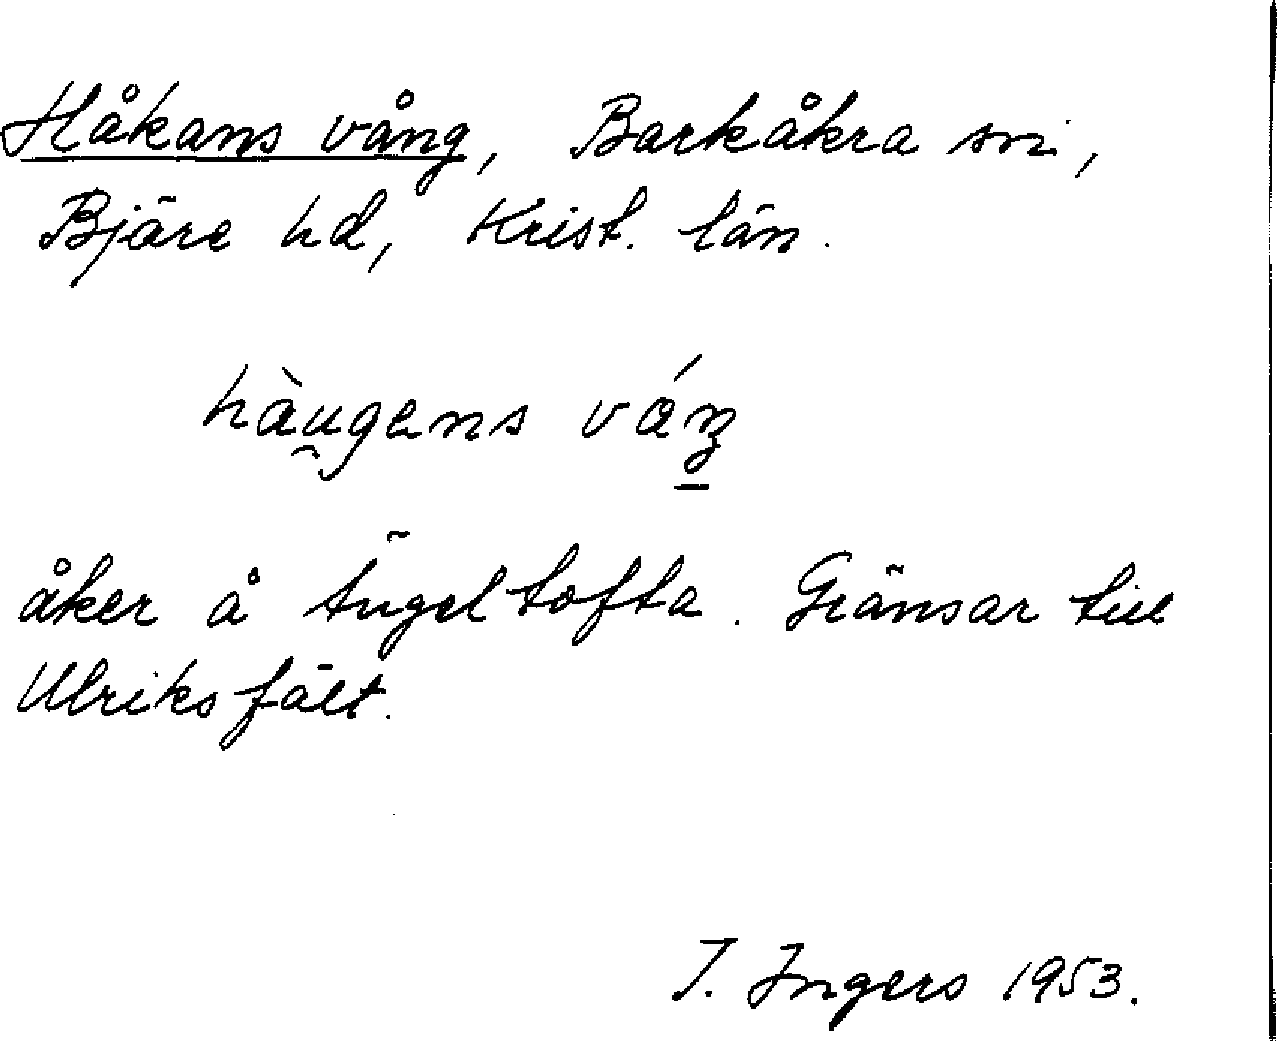 Håkans vång, Barkåkra sn,
Bjäre hd, Krist. län.
hàu̯gens váŋ
åker å Ängeltofta. Gränsar till
Ulriksfält.
I. Ingers 1953.